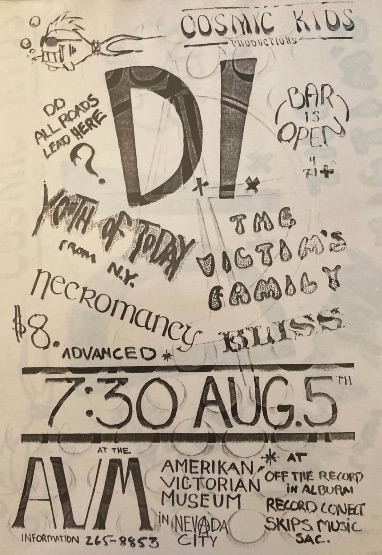 COSMIC KIDS
PRODUCTIONS
DO
ALL ROADS
LEAD HERE
?
D.I.
BAR
IS
OPEN
21+
YOUTH OF TODAY
FROM N.Y.
THE
VICTIM'S
FAMILY
NECROMANCY
BLISS
$8. ADVANCED *
7:30 AUG. 5TH
AT THE
AVM
AMERIKAN
VICTORIAN
MUSEUM
IN NEVADA
CITY
INFORMATION 265-8853
* AT
OFF THE RECORD
IN ALBURN
RECORD CONECT
SKIPS MUSIC
SAC.